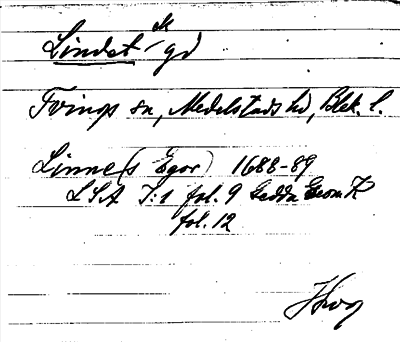 Lindet gd
Tvings sn, Medelstads hd, Blek. l.
Linne(s Egor) 1688-89
LSA I:1 fol. 9 Gedda Geom. K
fol. 12